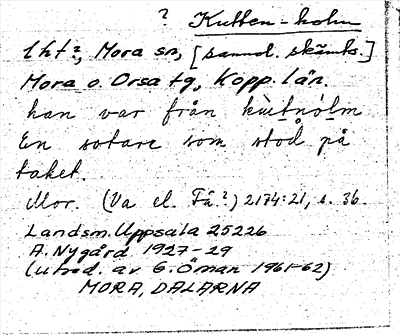 ? Kutten-holm
1 ht ?, Mora sn, [sannol. skämts.]
Mora o. Orsa tg, Kopp. län.
han var från kùtnòlm
En sotare som stod på
taket.
Mor. (Va el. Få?) 2174:21, s. 36.
Landsm. Uppsala 25226
A. Nygård 1927-29
(utred. av E. Öman 1961-62)
MORA, DALARNA